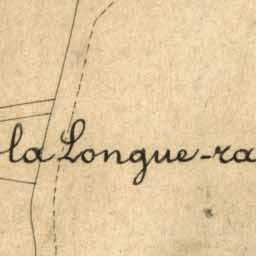 la Longue-ra